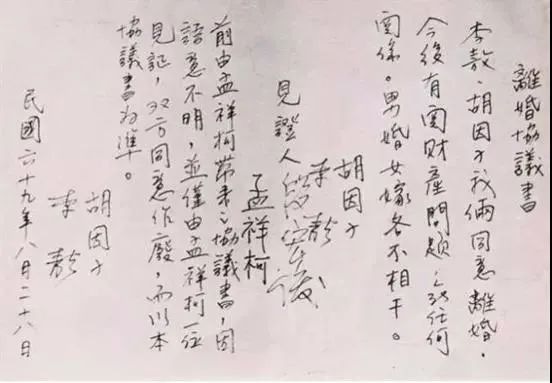 離婚協議書
李敖、胡因子我倆同意離婚,
今後有関財產問題,任何
関係。男婚女嫁各不相干。
胡因子
李敖
見證人
孟祥柯
前由孟祥柯帶来之協議書,因
語意不明,並僅由孟祥柯一位
見証,双方同意作廢,而以本
協議書為準。
胡因子
李敖
民國六十九年八月二十八日